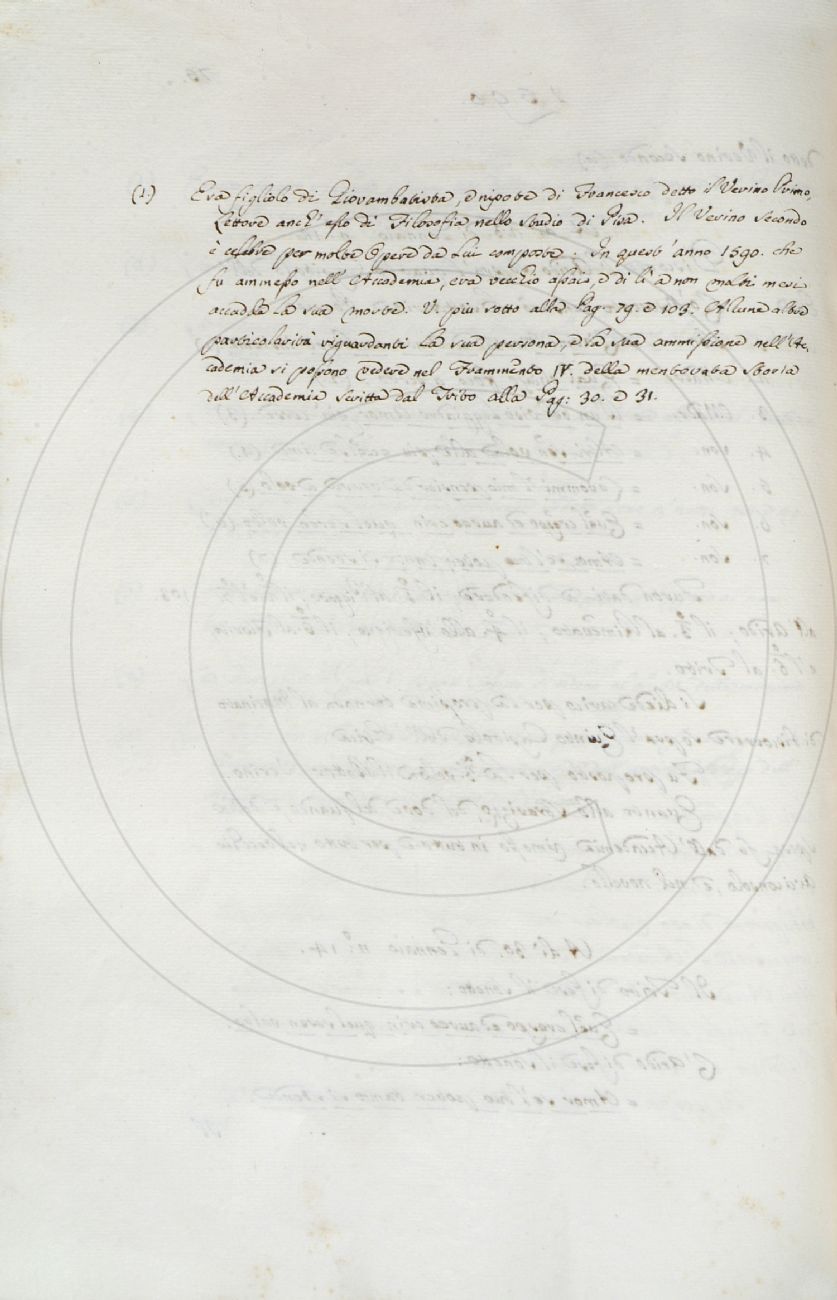 (1.) Era figliolo di Giovambatista, e nipote di Francesco detto il Verino Primo,
Lettore anch' esso di Filosofia nello Studio di Pisa. Il Verino Secondo
è celebre per molte Opere da Lui composte. In quest' anno 1590. che
fu ammesso nell' Accademia, era vecchio assai, e di lì a non molti mesi
accadde La sua morte. V. più sotto alla Pag. 79. e 103. Alcune altre
particolarità riguardanti La sua persona, e la sua ammissione nell' Ac,
cademia si possono vedere nel Frammento IV. della mentovata Storia
dell' Accademia Scritta dal Trito alla Pag: 30. e 31.